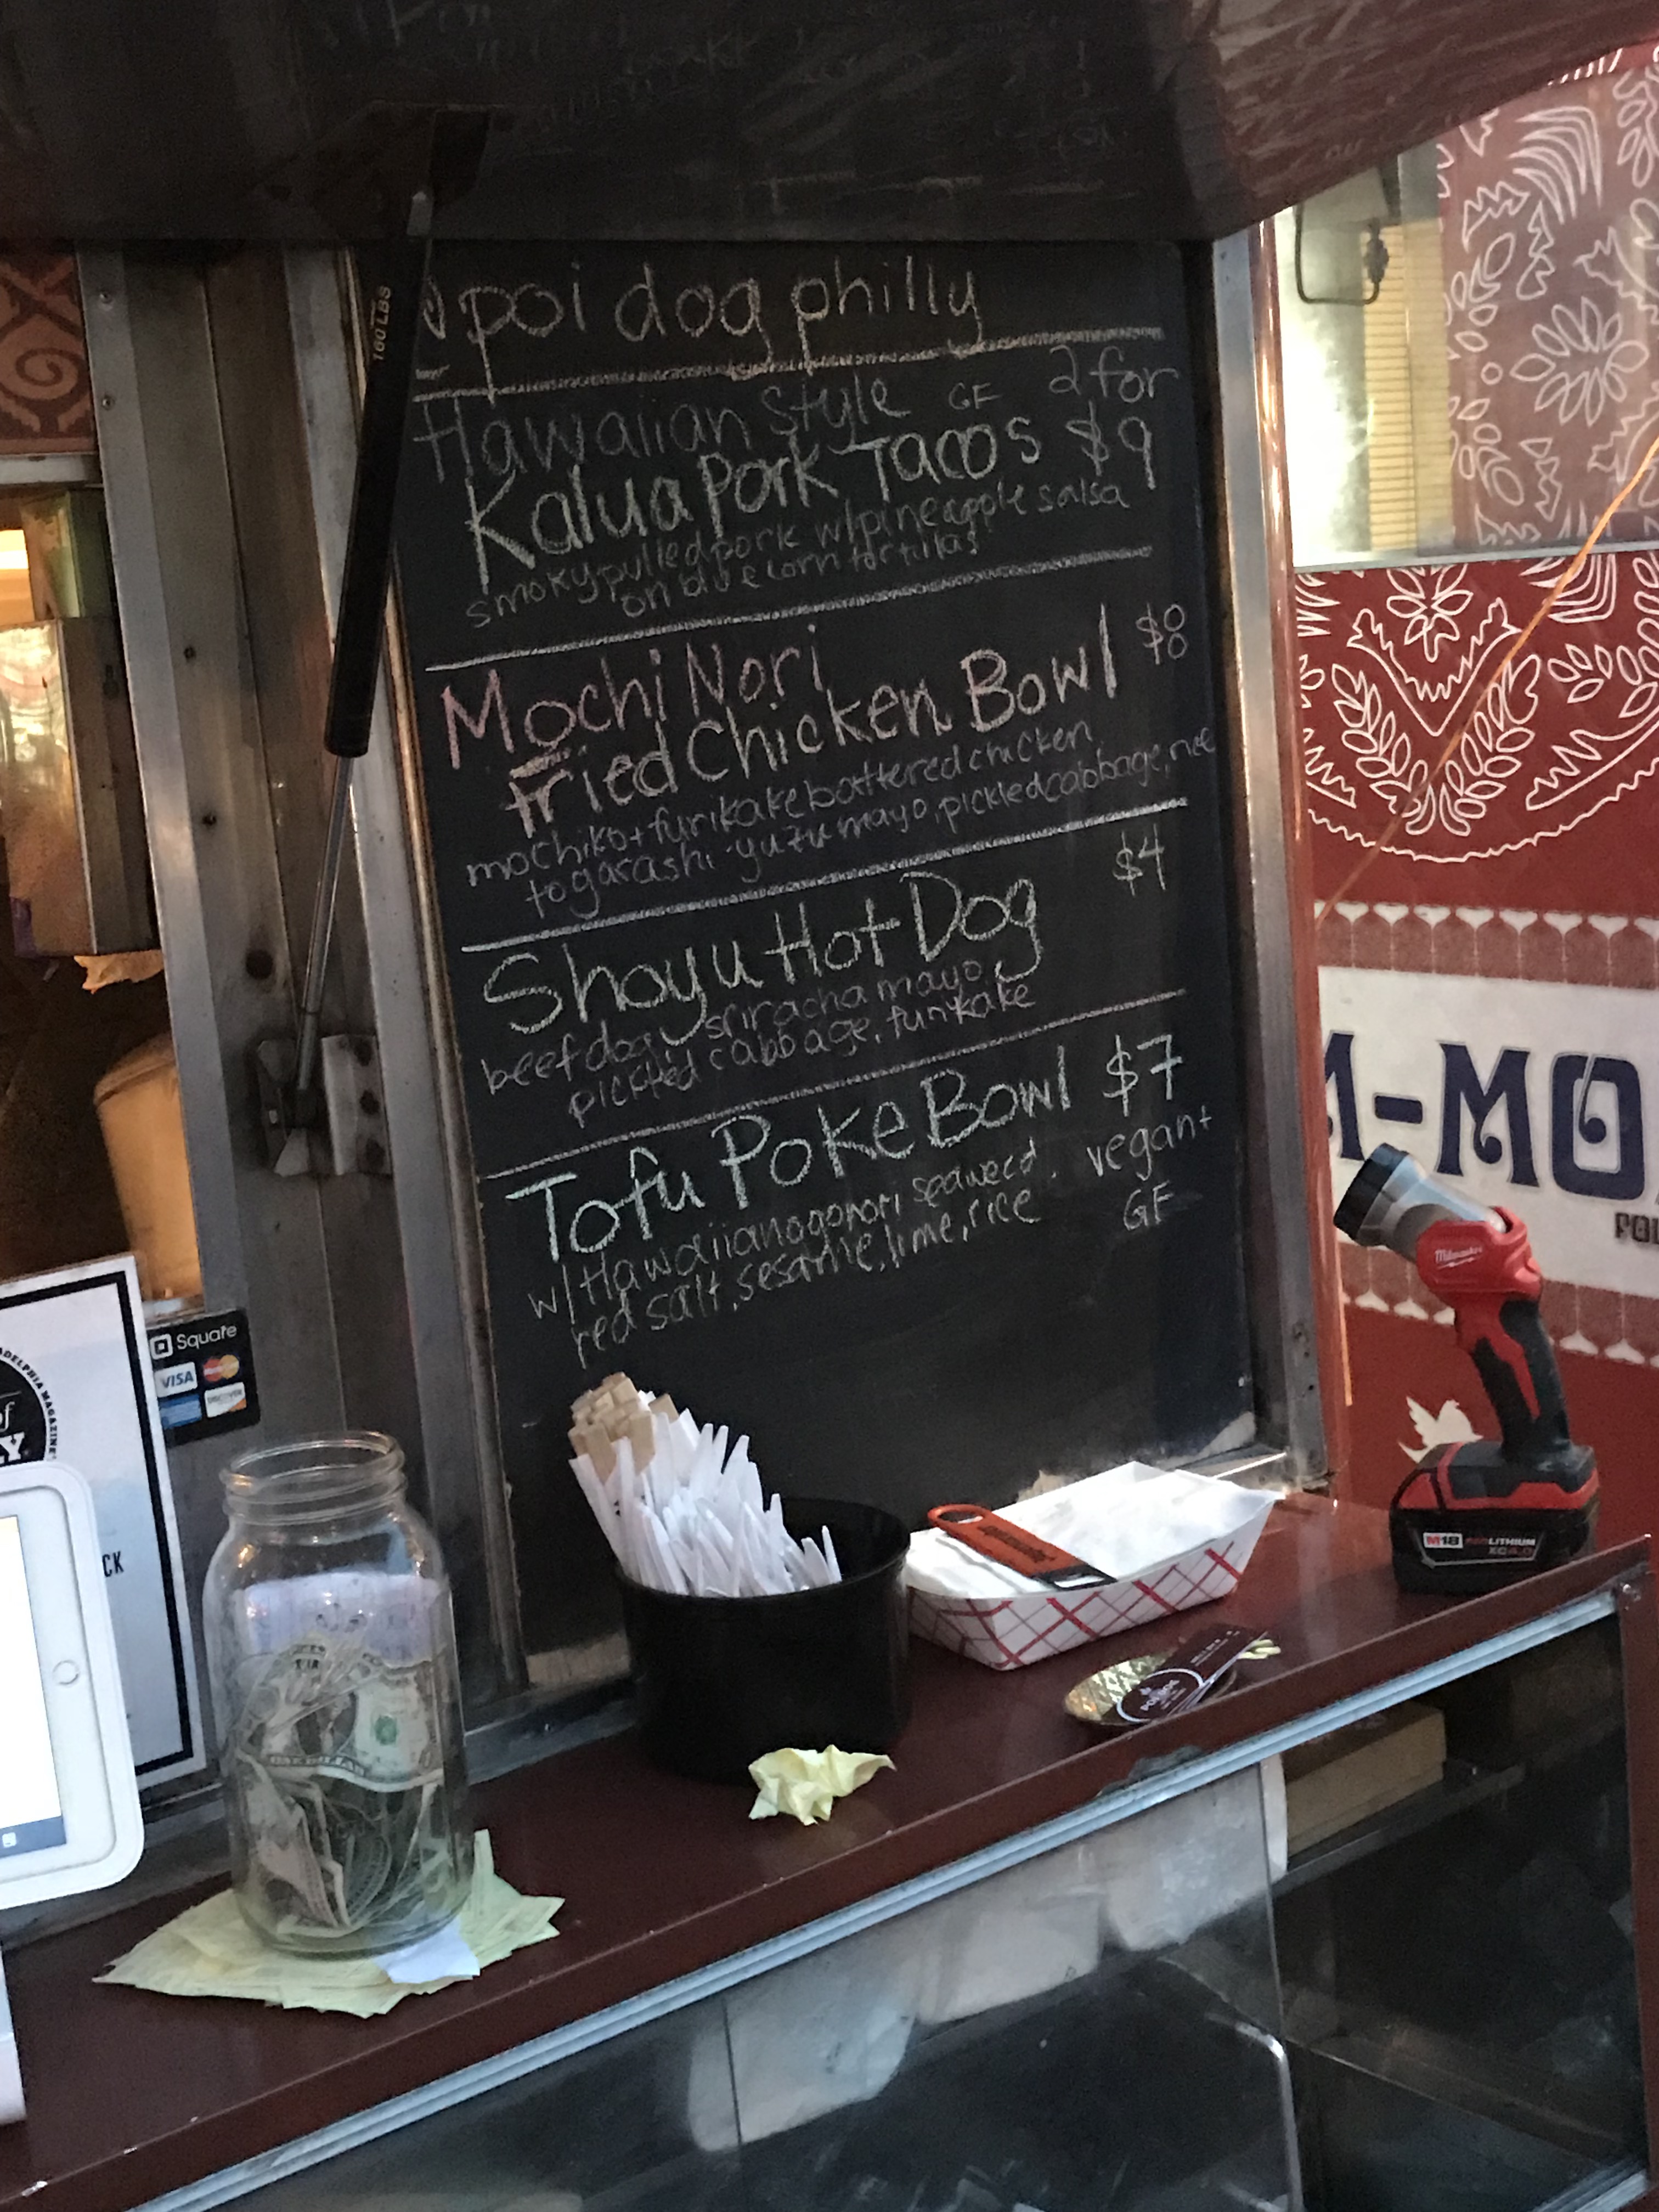 poi dog philly
160 LBS
Hawaiian Style GF 2 for
Kalua Pork Tacos $9
smoky pulled pork w/pineapple salsa
on blue corn tortillas
Mochi Nori
Fried Chicken Bowl $8
mochiko + furikake battered chicken
togarashi yuzu mayo, pickled cabbage, rice
Shoyu Hot Dog $4
beef dog, sriracha mayo,
pickled cabbage, furikake
Tofu Poke Bowl $7
w/ Hawaiian ogonori seaweed, vegan +
red salt, sesame, lime, rice GF
M-MO
Milwaukee
M18 REDLITHIUM
XC4.0
Square
VISA
MasterCard
DISCOVER
ADELPHIA MAGAZINE
of
LY
CK
POI DOG